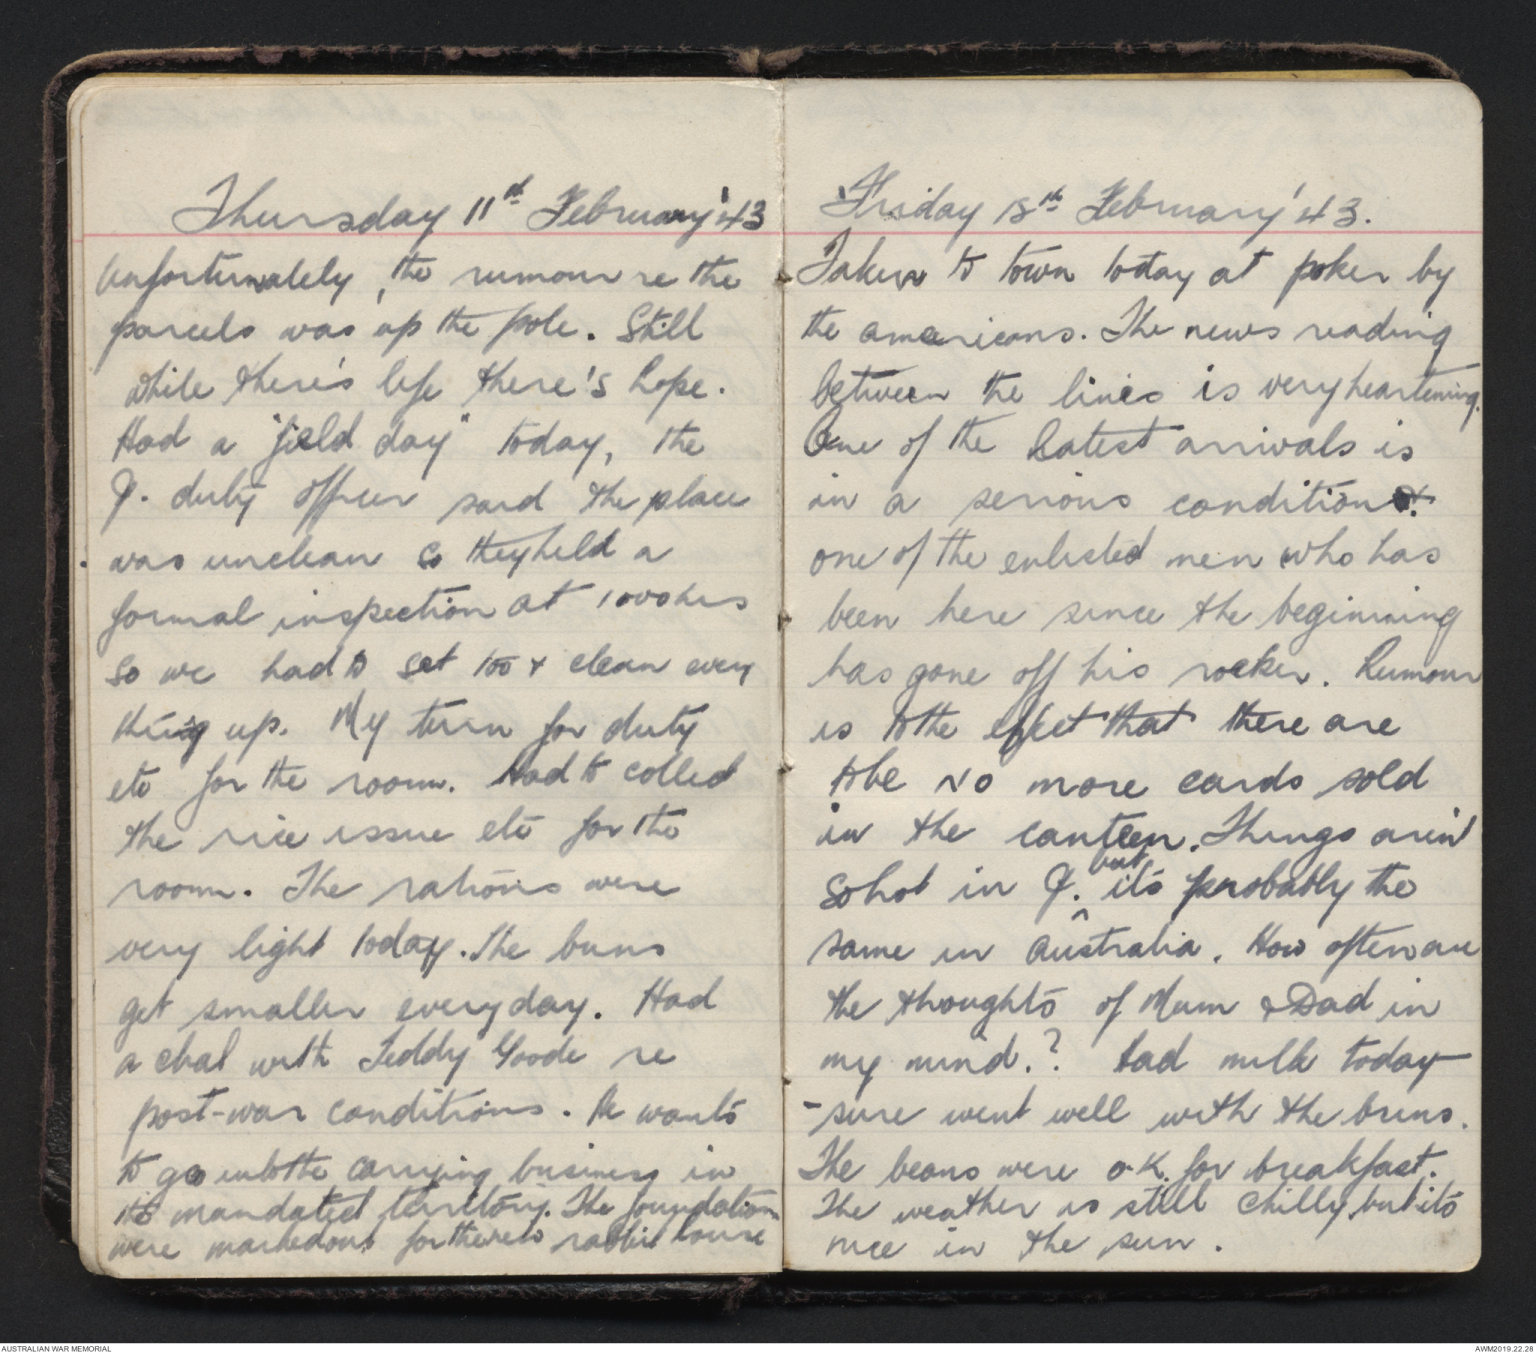 Thursday 11th February '43
Unfortunately, the rumour re the
parcels was up the pole. Still
while there's life there's hope.
Had a "field day" today, the
J. duty officer said the place
was unclean so they held a
formal inspection at 1000hrs
so we had to set too & clean every
thing up. My turn for duty
etc for the room. Had to collect
the rice issue etc for the
room. The rations were
very light today. The buns
get smaller everyday. Had
a chat with Teddy Goode re
post-war conditions. He wants
to go into the carrying business in
the mandated territory. The foundations
were marked out for the new rabbit house
Friday 12th February '43.
Taken to town today at poker by
the americans. The news reading
between the lines is very heartening.
One of the latest arrivals is
in a serious condition &
one of the enlisted men who has
been here since the beginning
has gone off his rocker. Rumour
is to the effect that there are
to be NO more cards sold
in the canteen. Things arint
so hot in J. but it's probably the
same in Australia. How often are
the thoughts of Mum & Dad in
my mind.? Had milk today
- sure went well with the buns.
The beans were O.K. for breakfast.
The weather is still chilly but it's
nice in the sun.
AUSTRALIAN WAR MEMORIAL
AWM2019.22.28